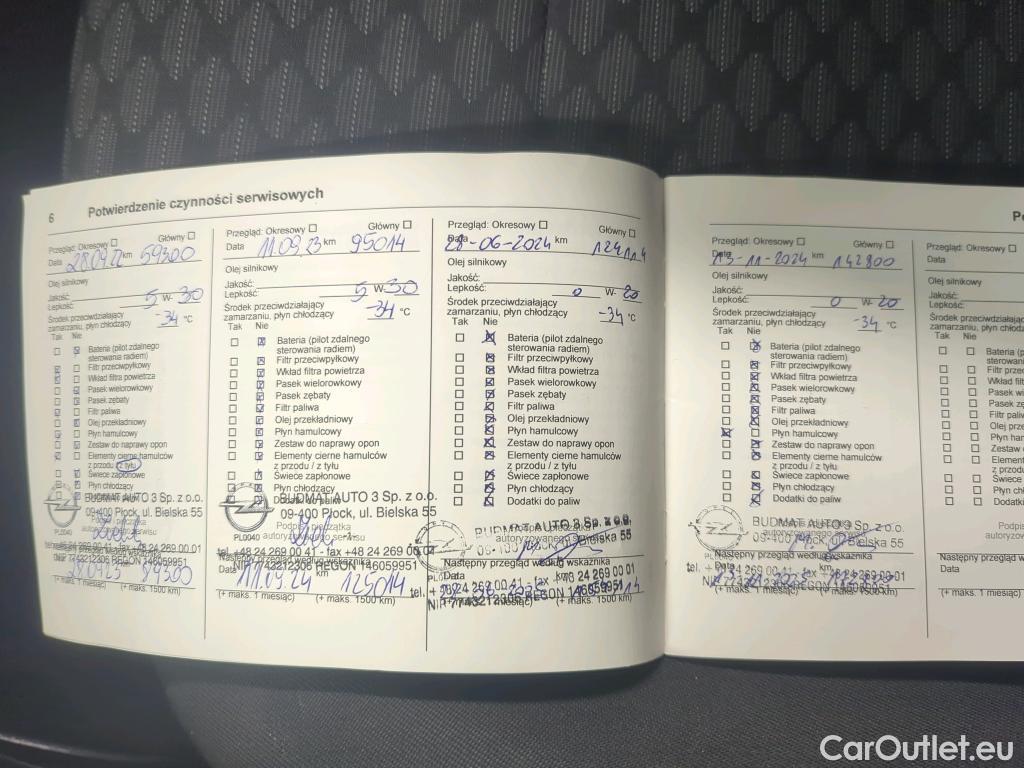 6 Potwierdzenie czynności serwisowych
Przegląd: Okresowy Główny
Data 28.09.22 km 59300
Olej silnikowy
Jakość:
Lepkość: 5 W- 30
Środek przeciwdziałający
zamarzaniu, płyn chłodzący -34 °C
Tak Nie
Bateria (pilot zdalnego
sterowania radiem)
Filtr przeciwpyłkowy
Wkład filtra powietrza
Pasek wielorowkowy
Pasek zębaty
Filtr paliwa
Olej przekładniowy
Płyn hamulcowy
Zestaw do naprawy opon
Elementy cierne hamulców
z przodu / z tyłu
Świece zapłonowe
Płyn chłodzący
BUDMAT AUTO 3 Sp. z o.o.
09-400 Płock, ul. Bielska 55
PL0040
Data 89300
(+ maks. 1 miesiąc) (+ maks. 1500 km)
Przegląd: Okresowy Główny
Data 11.09.23 km 95014
Olej silnikowy
Jakość:
Lepkość: 5 W- 30
Środek przeciwdziałający
zamarzaniu, płyn chłodzący -34 °C
Tak Nie
Bateria (pilot zdalnego
sterowania radiem)
Filtr przeciwpyłkowy
Wkład filtra powietrza
Pasek wielorowkowy
Pasek zębaty
Filtr paliwa
Olej przekładniowy
Płyn hamulcowy
Zestaw do naprawy opon
Elementy cierne hamulców
z przodu / z tyłu
Świece zapłonowe
Płyn chłodzący
Dodatki do paliw
BUDMAT AUTO 3 Sp. z o.o.
09-400 Płock, ul. Bielska 55
Podpis i pieczątka
autoryzowanego serwisu
PL0040
tel. +48 24 269 00 41 - fax +48 24 269 00 02
Następny przegląd według wskaźnika
NIP 7743212306 REGON 146059951
Data 11.09.24 km 125014
(+ maks. 1 miesiąc) (+ maks. 1500 km)
Przegląd: Okresowy Główny
Data 28-06-2024 km 124114
Olej silnikowy
Jakość:
Lepkość: 0 W- 20
Środek przeciwdziałający
zamarzaniu, płyn chłodzący -34 °C
Tak Nie
Bateria (pilot zdalnego
sterowania radiem)
Filtr przeciwpyłkowy
Wkład filtra powietrza
Pasek wielorowkowy
Pasek zębaty
Filtr paliwa
Olej przekładniowy
Płyn hamulcowy
Zestaw do naprawy opon
Elementy cierne hamulców
z przodu / z tyłu
Świece zapłonowe
Płyn chłodzący
Dodatki do paliw
BUDMAT AUTO 3 Sp. z o.o.
autoryzowanego Bielska 55
Następny przegląd według wskaźnika
Data
(+ maks. 1 miesiąc) (+ maks. 1500 km)
Przegląd: Okresowy Główny
Data 13-11-2024 km 142800
Olej silnikowy
Jakość:
Lepkość: 0 W- 20
Środek przeciwdziałający
zamarzaniu, płyn chłodzący -34 °C
Tak Nie
Bateria (pilot zdalnego
sterowania radiem)
Filtr przeciwpyłkowy
Wkład filtra powietrza
Pasek wielorowkowy
Pasek zębaty
Filtr paliwa
Olej przekładniowy
Płyn hamulcowy
Zestaw do naprawy opon
Elementy cierne hamulców
z przodu / z tyłu
Świece zapłonowe
Płyn chłodzący
Dodatki do paliw
BUDMAT AUTO 3 Sp. z o.o.
Bielska 55
Następny przegląd według wskaźnika
(+ maks. 1 miesiąc) (+ maks. 1500 km)
Po
Przegląd: Okresowy
Data
Olej silnikowy
Jakość:
Lepkość:
Środek przeciwdziałający
zamarzaniu, płyn chłodzący
Tak Nie
Bateria (p
sterowania
Filtr przeciw
Wkład filtra
Pasek wielo
Pasek zęba
Filtr paliwa
Olej przekła
Płyn hamul
Zestaw do n
Elementy c
z przodu /
Świece
Płyn chłodz
Dodatki do
Po
autoryzo
Następny przegląd wed
Data
(+ maks. 1 miesiąc)
CarOutlet.eu